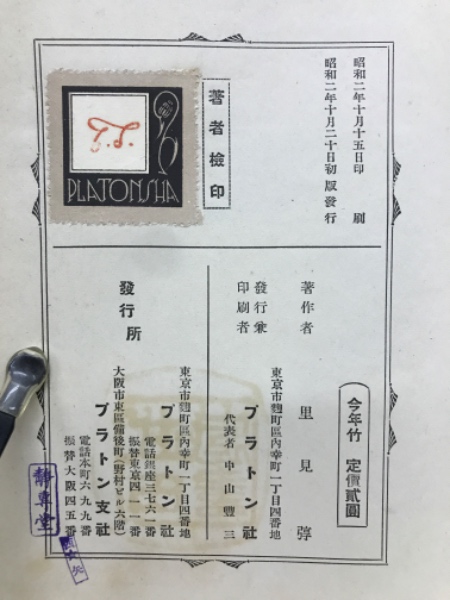 昭和二年十月十五日印刷
昭和二年十月二十日初版發行
著者檢印
T.S.
PLATONSHA
今年竹 定價貳圓
著作者 里見弴
發行兼
印刷者
東京市麹町區內幸町一丁目四番地
プラトン社
代表者 中山豐三
發行所
東京市麹町區內幸町一丁目四番地
プラトン社
電話銀座三七六一番
振替東京四一一一番
大阪市東區備後町(野村ビル六階)
プラトン支社
電話本町六九九番
振替大阪四五番
靜專堂